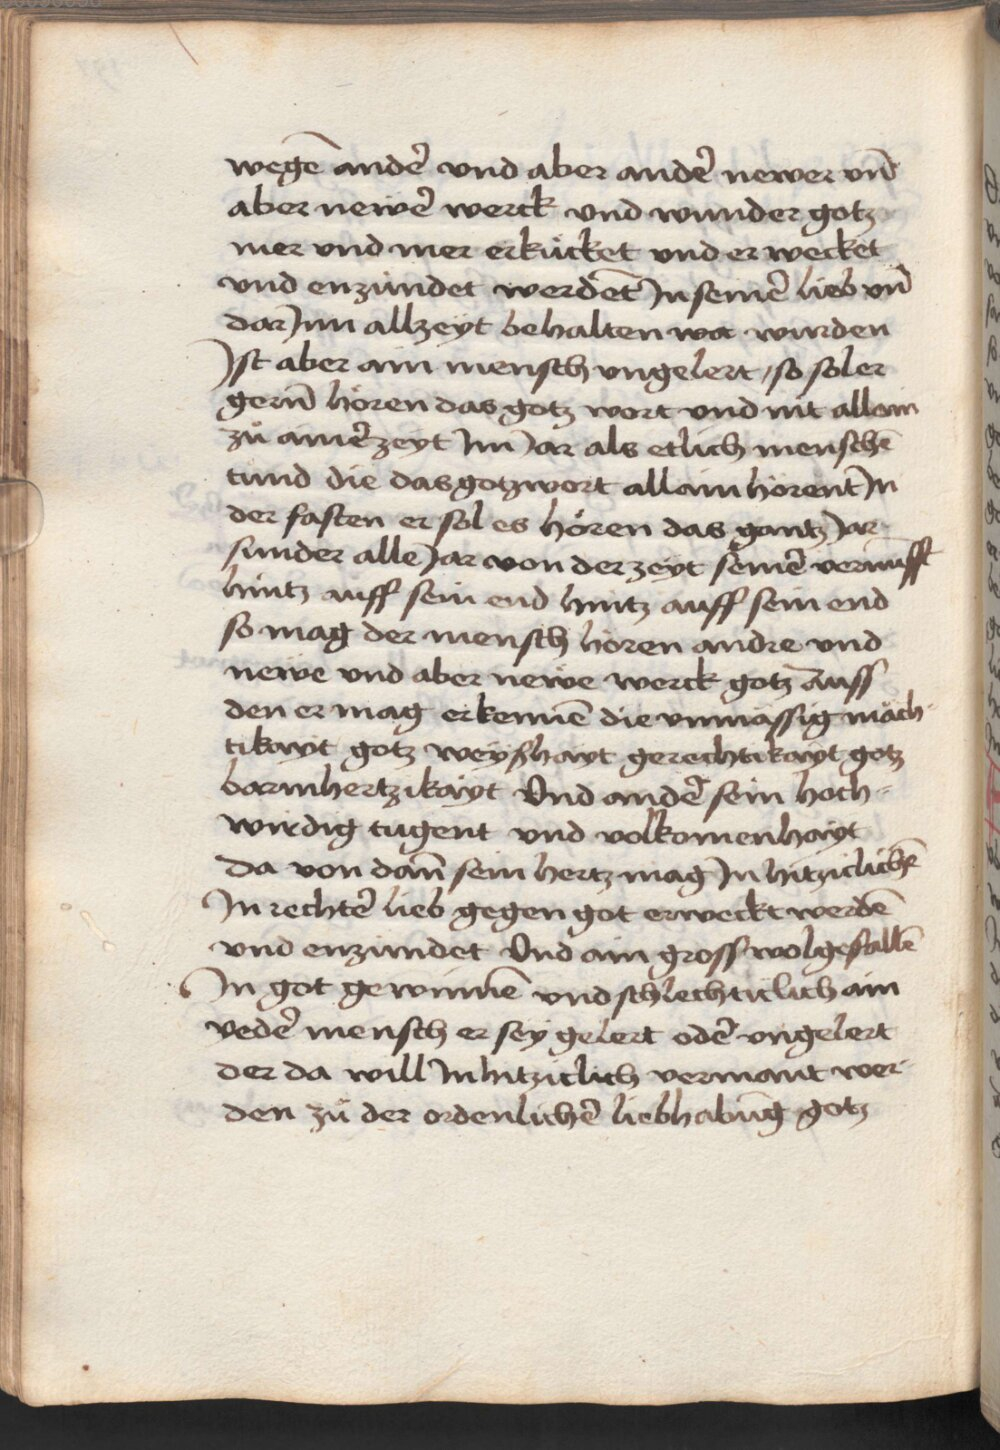 wegē andē vnd aber andē newer vn̄
aber newē werck vnd wunder gotz
mer vnd mer erkücket vnd er wecket
vnd enzündet werdēt In seinē lieb vn̄
dar Inn allzeyt behalten wurden
Ist aber ain mensch vngelert / so sol er
gern̄ hören das gotz wort vnd nit allain
zů ainē zeyt Im Jar als etlich menschē
tund die das gotzwort allain hörent In
der fasten er sol es hören das gantz Jar
sunder alle Jar von der zeyt seinē vernufft
hintz auff sein end hintz auff sein end
so mag der mensch hören andre vnd
newe vnd aber newe werck gotz Auss
den er mag erkennē die vnmässig mäch-
tikayt gotz weyshayt gerechtikayt gotz
barmhertzikayt Vnd andē sein hoch-
wirdig tugent vnd volkomenhayt
Da von dan̄ sein hertz mag In hitziclichē
In rechtē lieb gegen got erweckt werdē
vnd enzündet Vnd ain gross wolgefallē
In got gewinnē vnd schlechticlich ain
yedē mensch er sey gelert odē vngelert
der da will In hitziclich vermant wer-
den zů der ordenlichē liebhabūg gotz